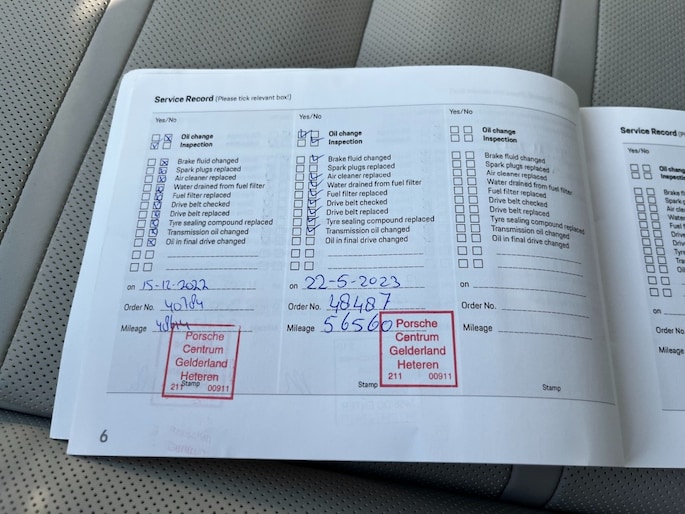 Service Record (Please tick relevant box!)
Yes/No
Oil change
Inspection
Brake fluid changed
Spark plugs replaced
Air cleaner replaced
Water drained from fuel filter
Fuel filter replaced
Drive belt checked
Drive belt replaced
Tyre sealing compound replaced
Transmission oil changed
Oil in final drive changed
on 15-12-2022
Order No. 40784
Mileage
Porsche
Centrum
Gelderland
Heteren
211 00911
Stamp
Yes/No
Oil change
Inspection
Brake fluid changed
Spark plugs replaced
Air cleaner replaced
Water drained from fuel filter
Fuel filter replaced
Drive belt checked
Drive belt replaced
Tyre sealing compound replaced
Transmission oil changed
Oil in final drive changed
on 22-5-2023
Order No. 48487
Mileage 56560
Porsche
Centrum
Gelderland
Heteren
211 00911
Stamp
Yes/No
Oil change
Inspection
Brake fluid changed
Spark plugs replaced
Air cleaner replaced
Water drained from fuel filter
Fuel filter replaced
Drive belt checked
Drive belt replaced
Tyre sealing compound replaced
Transmission oil changed
Oil in final drive changed
on
Order No.
Mileage
Stamp
6
Service Record
Yes/No
Oil
Inspection
on
Order No.
Mileage